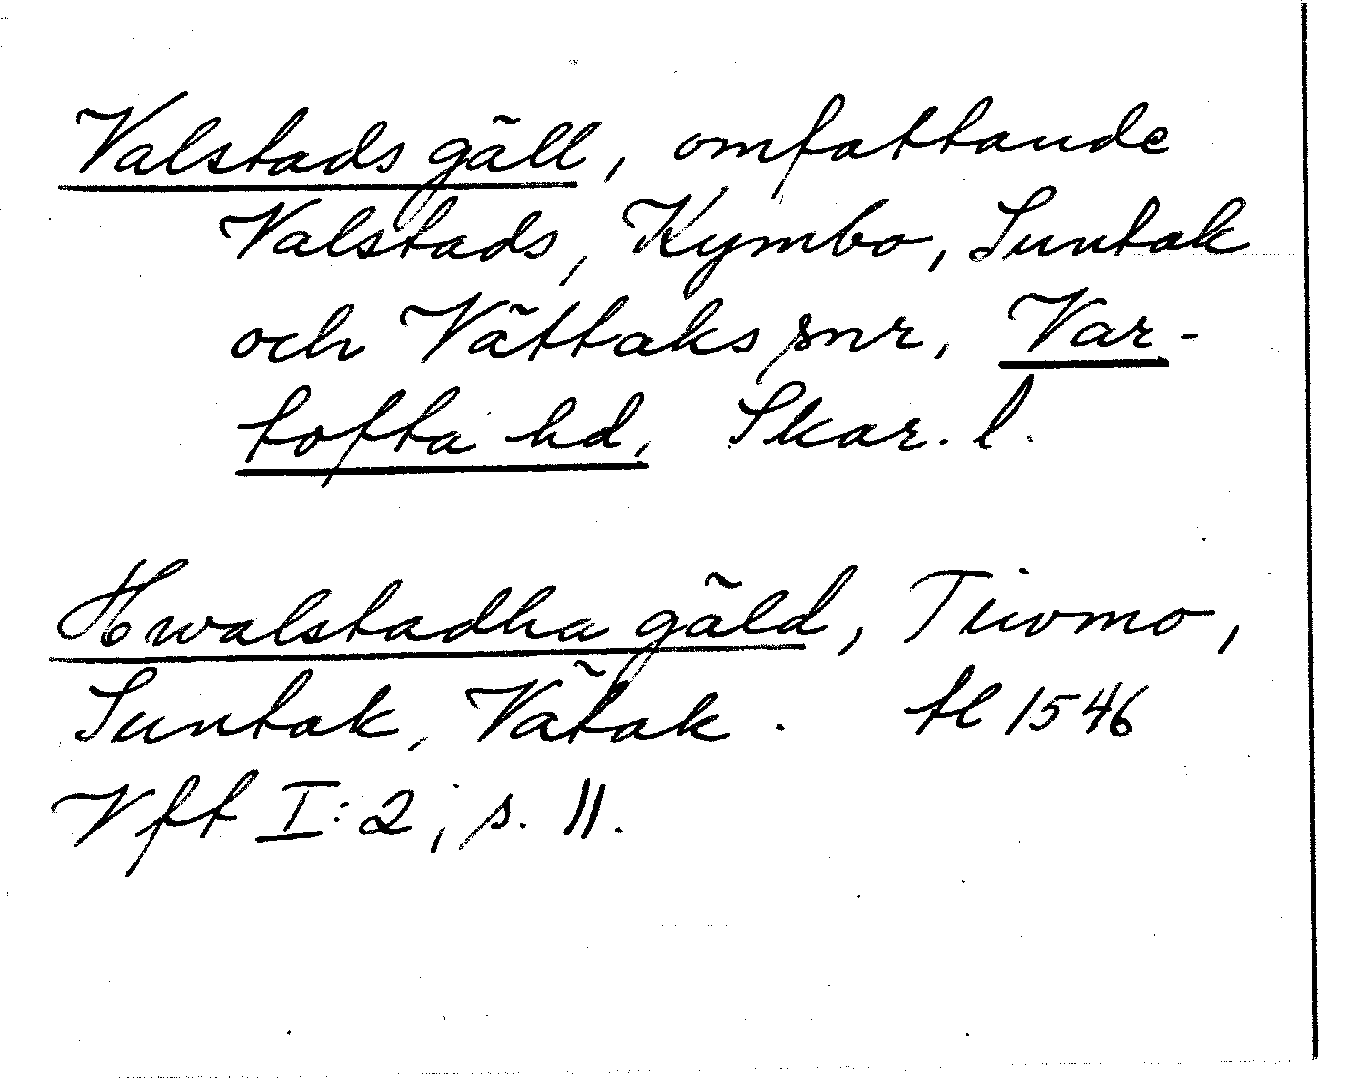 Valstads gäll, omfattande
Valstads, Kymbo, Suntak
och Vättaks snr, Var-
tofta hd, Skar. l.
Hwalstadha gäld, Tiivmo,
Suntak, Vätak. tl 1546
Vft I:2, s. 11.